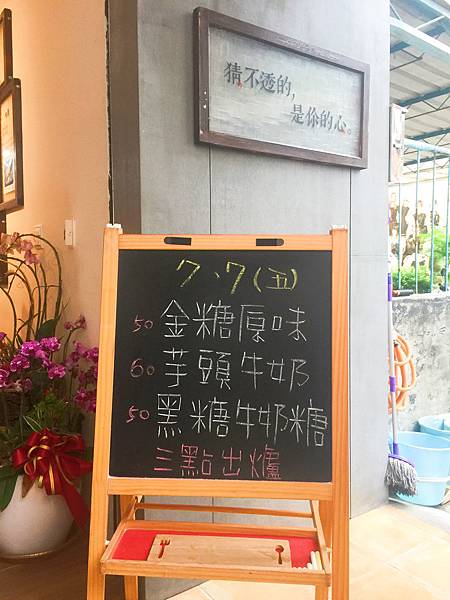 猜不透的,
是你的心。
7、7(五)
50 金糖原味
60 芋頭牛奶
50 黑糖牛奶糖
三點出爐